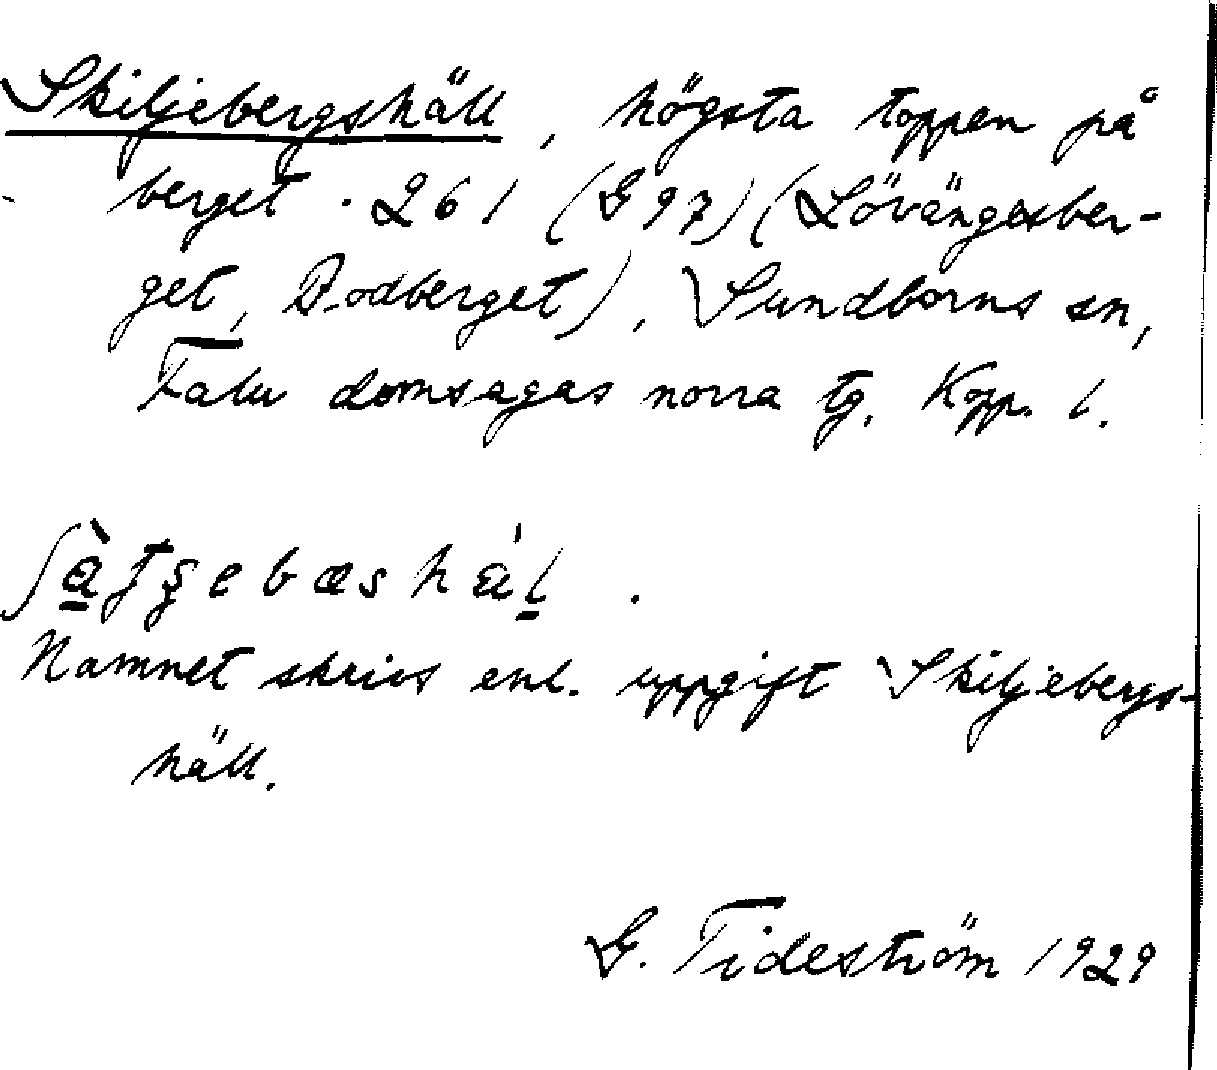 Skiljebergshäll, högsta toppen på
berget . 261 (G97) (Lövängesber-
get, Bodberget), Sundborns sn,
Falu domsagas norra tg. Kopp. l.
Namnet skrivs enl. uppgift Skiljebergs-
häll.
G. Tideström 1929